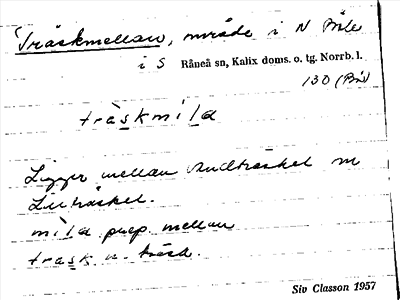 Träskmellan, område i N Böle
i S Råneå sn, Kalix doms. o. tg. Norrb. l.
130 (Böl)
träskmilda
Ligger mellan Andträsket m
Lillträsket.
milda prep. mellan
trask n. träsk.
Siv Classon 1957